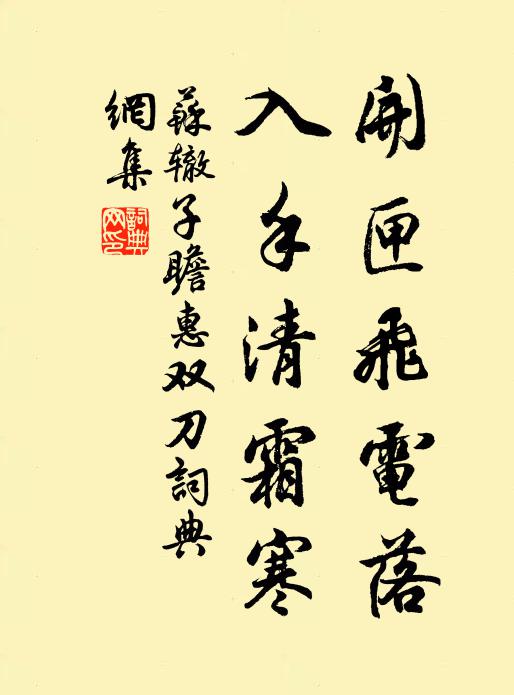 開匣飛電落
入手清霜寒
蘇辙子瞻惠双刀詞典
網集
詞典
网印